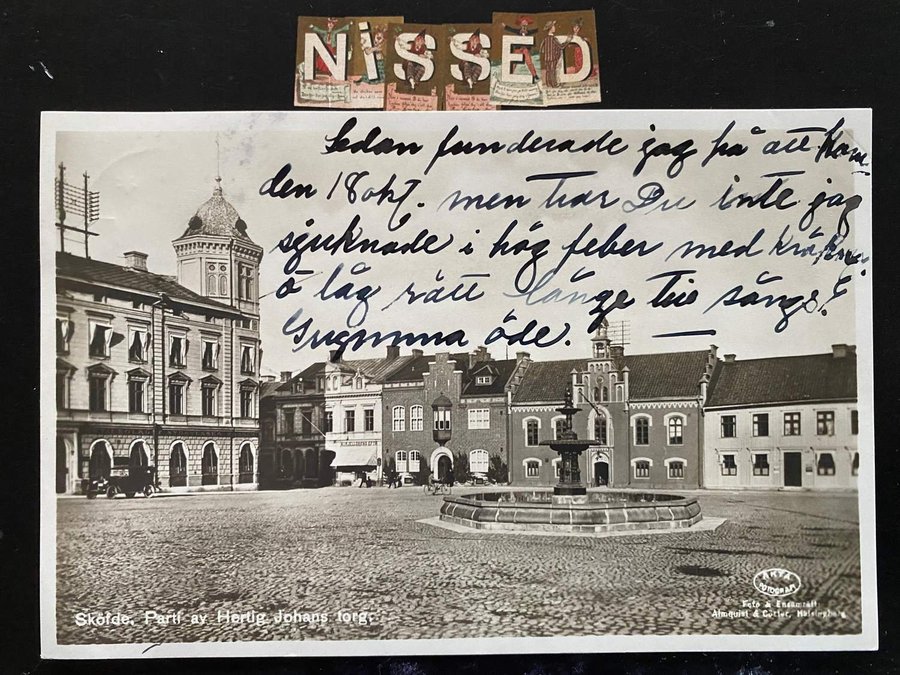 NiSSED
Sedan funderade jag på att kom
den 18 okt. men tror Du inte jag
sjuknade i hög feber med
o låg rätt länge till sängs!
öde.
Sköfde. Parti av Hertig Johans torg.
Foto & Ensamrätt
Almquist & Cöster, Helsingborg